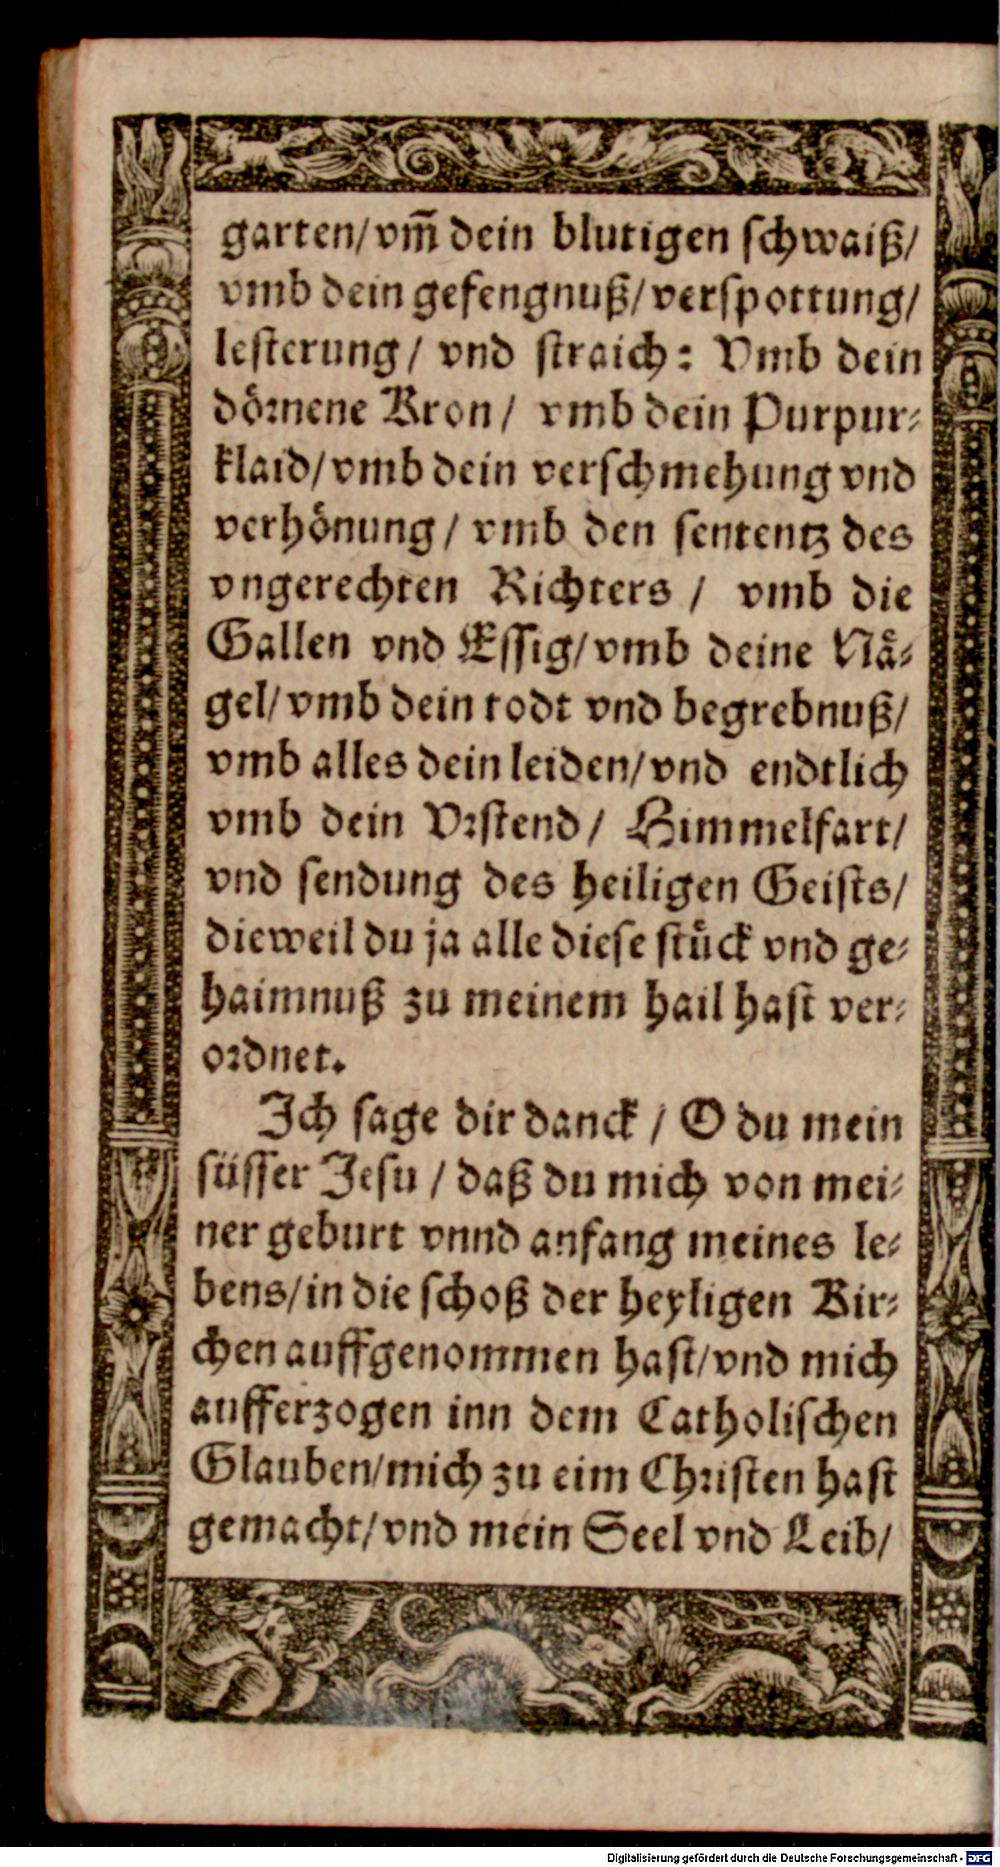 garten/vm̃ dein blutigen ſchwaiß/
vmb dein gefengnuß/verſpottung/
leſterung/ vnd ſtraich: Vmb dein
doͤrnene Kron/ vmb dein Purpur⸗
klaid/vmb dein verſchmehung vnd
verhoͤnung/ vmb den ſententz des
vngerechten Richters / vmb die
Gallen vnd Eſſig/vmb deine Naͤ⸗
gel/vmb dein todt vnd begrebnuß/
vmb alles dein leiden/vnd endtlich
vmb dein Vrſtend/ Himmelfart/
vnd ſendung des heiligen Geiſts/
dieweil du ja alle dieſe ſtuͤck vnd ge⸗
haimnuß zu meinem hail haſt ver⸗
ordnet.
Ich ſage dir danck / O du mein
ſüſſer Jeſu / daß du mich von mei⸗
ner geburt vnnd anfang meines le⸗
bens/in die ſchoß der heyligen Kir⸗
chen auffgenommen haſt/vnd mich
aufferzogen inn dem Catholiſchen
Glauben/mich zu eim Chriſten haſt
gemacht/vnd mein Seel vnd Leib/
Digitalisierung gefördert durch die Deutsche Forschungsgemeinschaft - DFG